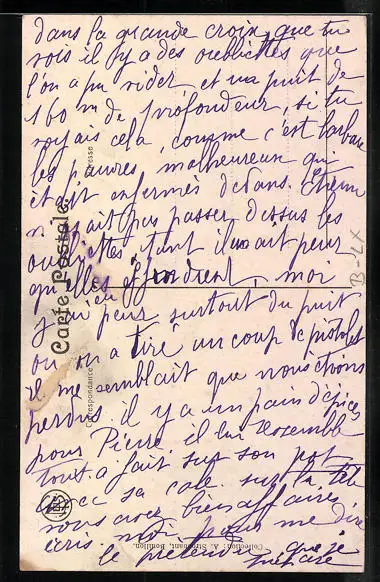 dans la grande croix que tu
vois il y a des oubliettes que
l'on a pu vider, et un puit de
160 m de profondeur, si tu
voyais cela, comme c'est barbare
les pauvres malheureux qui
était enfermés dedans. Etienne
n'osait pas passer dessus les
oubliettes, tant il avait peur
qu'elles effondrent, moi
j'ai eu peur surtout du puit
ou on a tiré un coup de pistolet
il me semblait que nous étions
perdus. il y a un pain d'épices
pour Pierre, il lui ressemble
tout à fait sur son pot
avec sa cane sur la tête
vous avez bien affaires
écris moi pour me dire
le que je
Carte Postale
Correspondance
Adresse
B-LX
Collection: A. Bouillon.